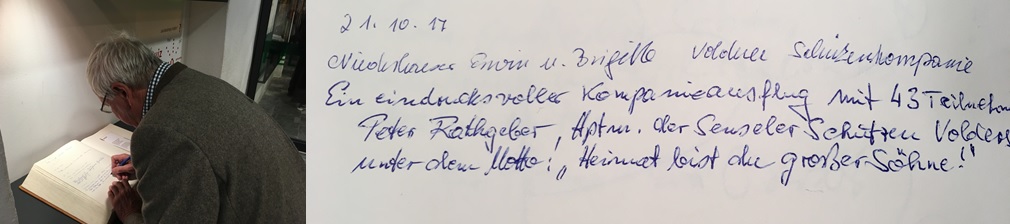 21. 10. 17
Erwin u. Brigitte Volderer Schützenkompanie
Ein eindrucksvoller Kompanieausflug mit 43 Teilnehm
Peter Rathgeber, Hptm. der Senseler Schützen Volders
unter dem Motto: „Heimat bist du großer Söhne!"